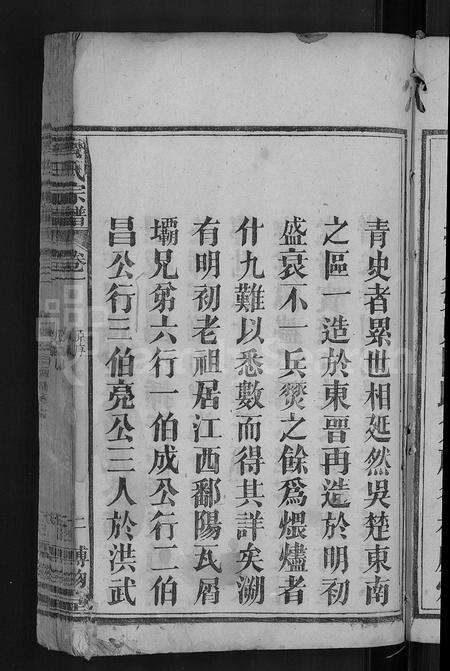 青史者累世相延然吳楚東南
之區一造於東晉再造於明初
盛衰不一兵燹之餘為煨燼者
什九難以悉數而得其詳矣溯
有明初老祖居江西鄱陽瓦屑
壩兄弟六行一伯成公行二伯
昌公行三伯亮公三人於洪武
氏宗譜
卷一